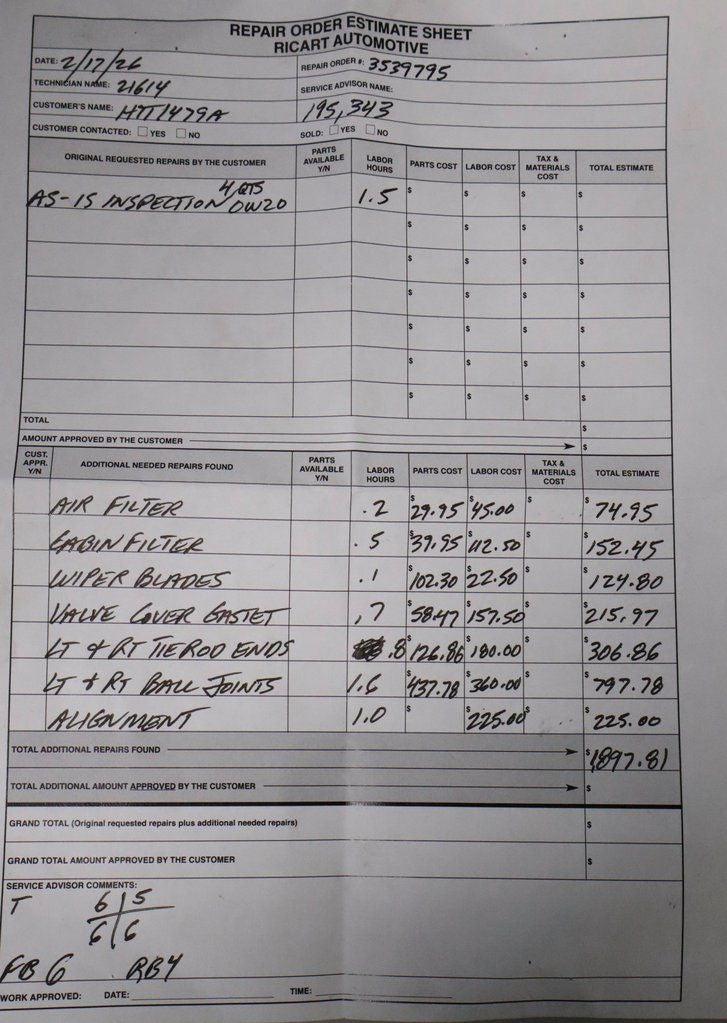 REPAIR ORDER ESTIMATE SHEET
RICART AUTOMOTIVE
DATE: 2/17/26
REPAIR ORDER #: 3539795
TECHNICIAN NAME: 21614
SERVICE ADVISOR NAME:
CUSTOMER'S NAME: HTT1479A
195,343
CUSTOMER CONTACTED: YES NO
SOLD: YES NO
ORIGINAL REQUESTED REPAIRS BY THE CUSTOMER PARTS AVAILABLE Y/N LABOR HOURS PARTS COST LABOR COST TAX & MATERIALS COST TOTAL ESTIMATE
4 QTS
AS-IS INSPECTION 0W20 1.5 $ $ $ $
$ $ $ $
$ $ $ $
$ $ $ $
$ $ $ $
$ $ $ $
$ $ $ $
TOTAL $
AMOUNT APPROVED BY THE CUSTOMER $
CUST. APPR. Y/N ADDITIONAL NEEDED REPAIRS FOUND PARTS AVAILABLE Y/N LABOR HOURS PARTS COST LABOR COST TAX & MATERIALS COST TOTAL ESTIMATE
AIR FILTER .2 $29.95 $45.00 $ $74.95
CABIN FILTER .5 $39.95 $112.50 $ $152.45
WIPER BLADES .1 $102.30 $22.50 $ $124.80
VALVE COVER GASTET .7 $58.47 $157.50 $ $215.97
LT & RT TIE ROD ENDS .8 $126.86 $180.00 $ $306.86
LT & RT BALL JOINTS 1.6 $437.78 $360.00 $ $797.78
ALIGNMENT 1.0 $ $225.00 $ $225.00
TOTAL ADDITIONAL REPAIRS FOUND $1897.81
TOTAL ADDITIONAL AMOUNT APPROVED BY THE CUSTOMER $
GRAND TOTAL (Original requested repairs plus additional needed repairs) $
GRAND TOTAL AMOUNT APPROVED BY THE CUSTOMER $
SERVICE ADVISOR COMMENTS:
T 6 5
6 6
FB 6 RB4
WORK APPROVED: DATE: TIME: